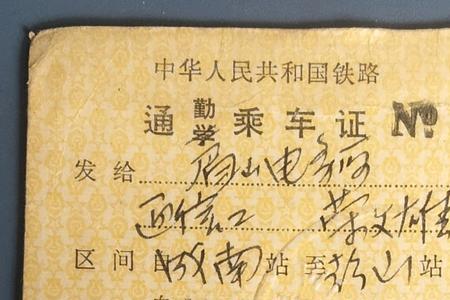 中华人民共和国铁路
通勤学乘车证 №
发给 眉山电
通信工
区间自成南站至彭山站